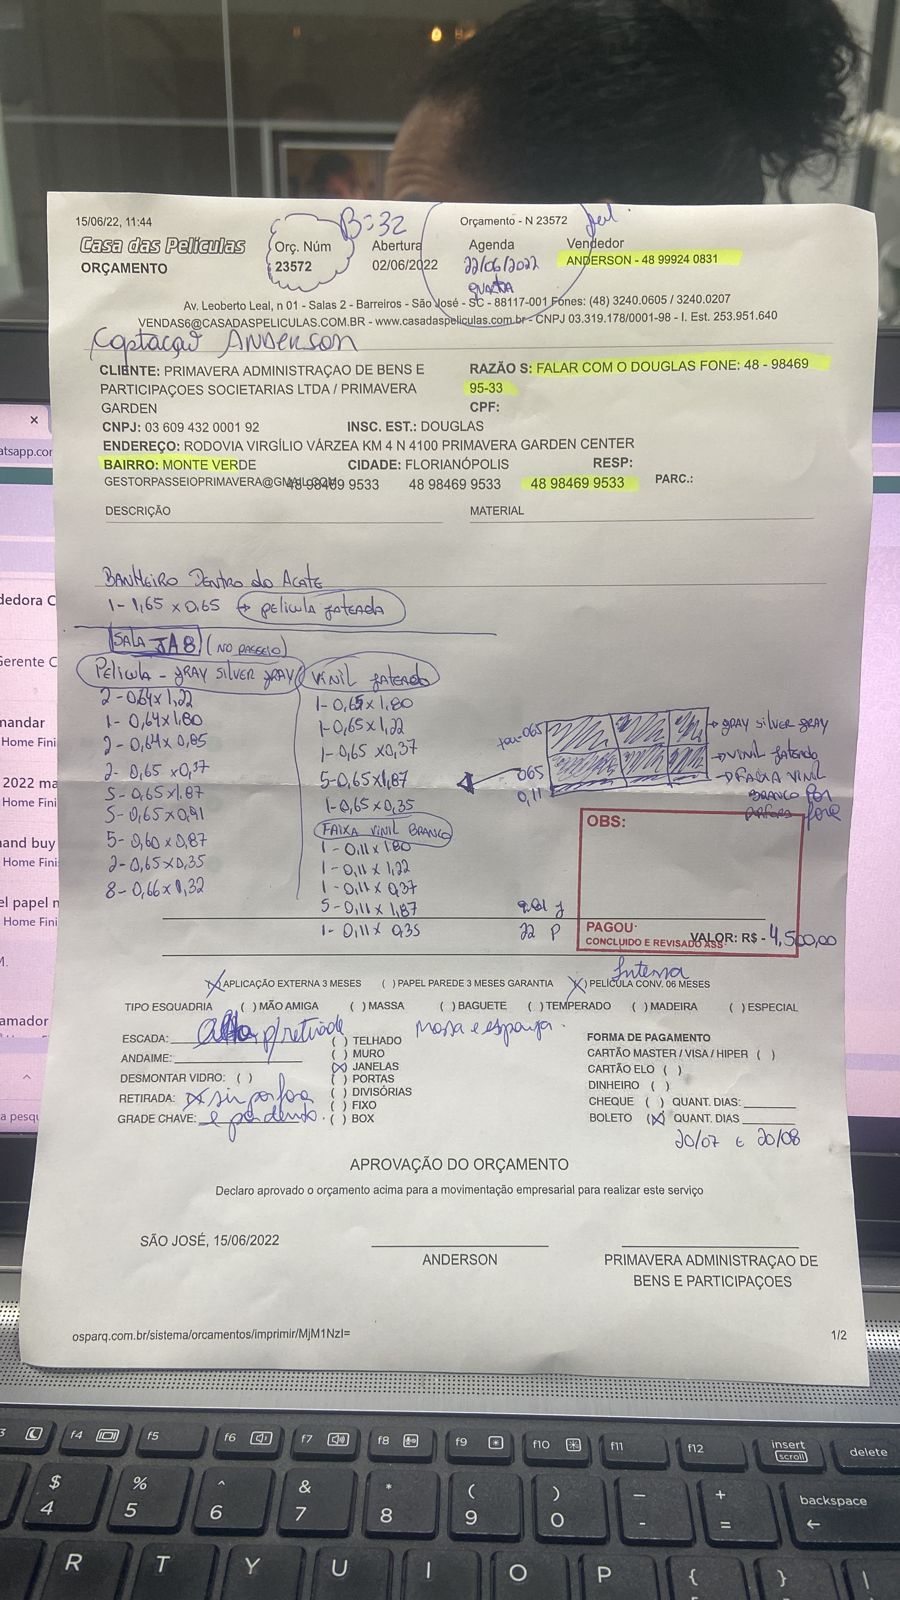 15/06/22, 11:44
B=32
Orçamento - N 23572
Casa das Películas
ORÇAMENTO
Orç. Núm
23572
Abertura
02/06/2022
Agenda
22/06/2022
QUARTA
Vendedor
ANDERSON - 48 99924 0831
Av. Leoberto Leal, n 01 - Salas 2 - Barreiros - São José - SC - 88117-001 Fones: (48) 3240.0605 / 3240.0207
VENDAS6@CASADASPELICULAS.COM.BR - www.casadaspeliculas.com.br - CNPJ 03.319.178/0001-98 - I. Est. 253.951.640
Captação Anderson
CLIENTE: PRIMAVERA ADMINISTRAÇAO DE BENS E
PARTICIPAÇOES SOCIETARIAS LTDA / PRIMAVERA
GARDEN
RAZÃO S: FALAR COM O DOUGLAS FONE: 48 - 98469
95-33
CPF:
CNPJ: 03 609 432 0001 92 INSC. EST.: DOUGLAS
ENDEREÇO: RODOVIA VIRGÍLIO VÁRZEA KM 4 N 4100 PRIMAVERA GARDEN CENTER
BAIRRO: MONTE VERDE CIDADE: FLORIANÓPOLIS RESP:
GESTORPASSEIOPRIMAVERA@GMAIL.COM 48 98469 9533 48 98469 9533 48 98469 9533 PARC.:
DESCRIÇÃO MATERIAL
BANHEIRO DENTRO DO ACATE
1- 1,65 x 0,65 → PELICULA JATEADA
SALA JA8 (NO PASSEIO)
PELICULA - GRAY SILVER GRAY
2- 0,64 x 1,22
1- 0,64 x 1,80
2- 0,64 x 0,85
2- 0,65 x 0,37
5- 0,65 x 1,87
5- 0,65 x 0,91
5- 0,60 x 0,87
2- 0,65 x 0,35
8- 0,66 x 1,32
VINIL JATEADO
1- 0,65 x 1,80
1- 0,65 x 1,22
1- 0,65 x 0,37
5- 0,65 x 1,87
1- 0,65 x 0,35
FAIXA VINIL BRANCO
1- 0,11 x 1,80
1- 0,11 x 1,22
1- 0,11 x 0,37
5- 0,11 x 1,87
1- 0,11 x 0,35
065
065
0,11
→ GRAY SILVER GRAY
→ VINIL JATEADO
→ FAIXA VINIL
BRANCO POR
FORA
22 P
OBS:
PAGOU:
CONCLUIDO E REVISADO ASS
VALOR: R$ - 4,500,00
Interna
(X) APLICAÇÃO EXTERNA 3 MESES ( ) PAPEL PAREDE 3 MESES GARANTIA (X) PELÍCULA CONV. 06 MESES
TIPO ESQUADRIA ( ) MÃO AMIGA ( ) MASSA ( ) BAGUETE ( ) TEMPERADO ( ) MADEIRA ( ) ESPECIAL
Massa e esponja.
ESCADA: Alta p/ retirada
ANDAIME:
DESMONTAR VIDRO: ( )
RETIRADA: X sim por fora
GRADE CHAVE: e por dentro.
( ) TELHADO
( ) MURO
(X) JANELAS
( ) PORTAS
( ) DIVISÓRIAS
( ) FIXO
( ) BOX
FORMA DE PAGAMENTO
CARTÃO MASTER / VISA / HIPER ( )
CARTÃO ELO ( )
DINHEIRO ( )
CHEQUE ( ) QUANT. DIAS:
BOLETO (X) QUANT. DIAS
20/07 E 20/08
APROVAÇÃO DO ORÇAMENTO
Declaro aprovado o orçamento acima para a movimentação empresarial para realizar este serviço
SÃO JOSÉ, 15/06/2022
ANDERSON
PRIMAVERA ADMINISTRAÇAO DE
BENS E PARTICIPAÇOES
osparq.com.br/sistema/orcamentos/imprimir/MjM1NzI=
1/2
f4 f5 f6 f7 f8 f9 f10 f11 f12 insert scroll delete
$ % ^ & * ( ) — + backspace
4 5 6 7 8 9 0 - = ←
R T Y U I O P { }